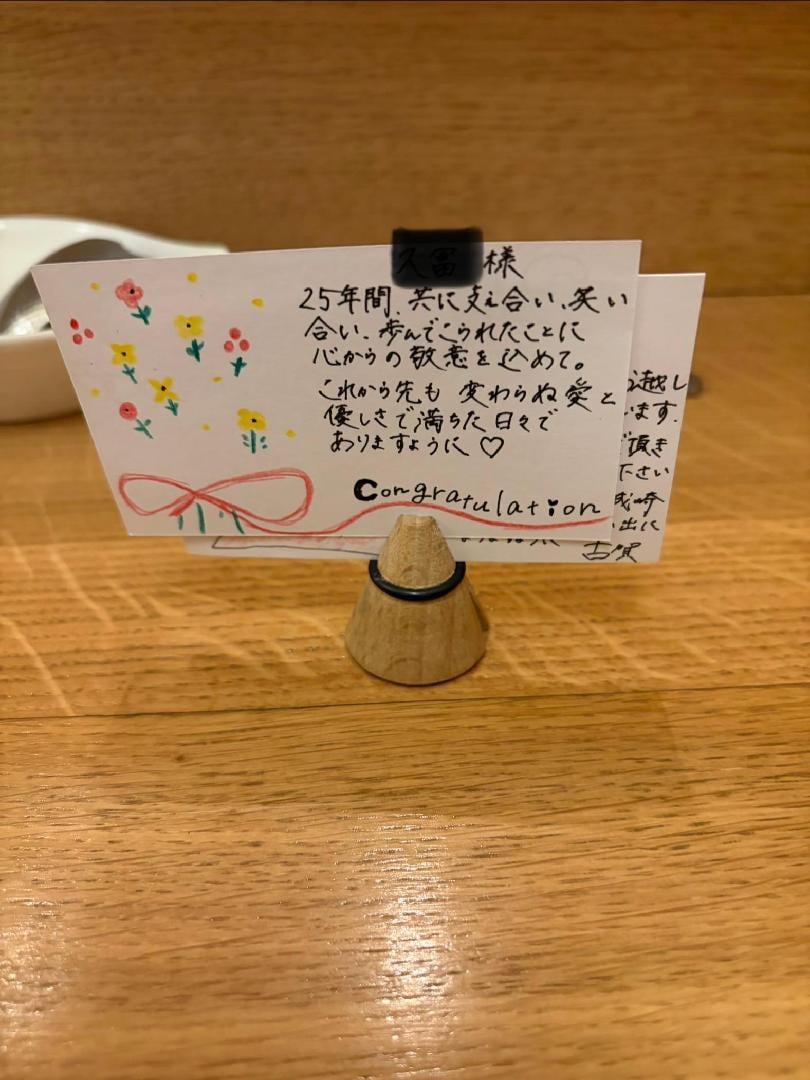 様
25年間、共に支え合い、笑い
合い、歩んでこられたことに
心からの敬意を込めて。
これから先も 変わらぬ愛と
優しさで満ちた日々で
ありますように♡
Congratulation
越し
います.
頂き
下さい
成崎
出に
古賀